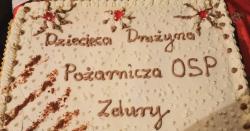 Dziecięca Drużyna
Pożarnicza OSP
Zdury